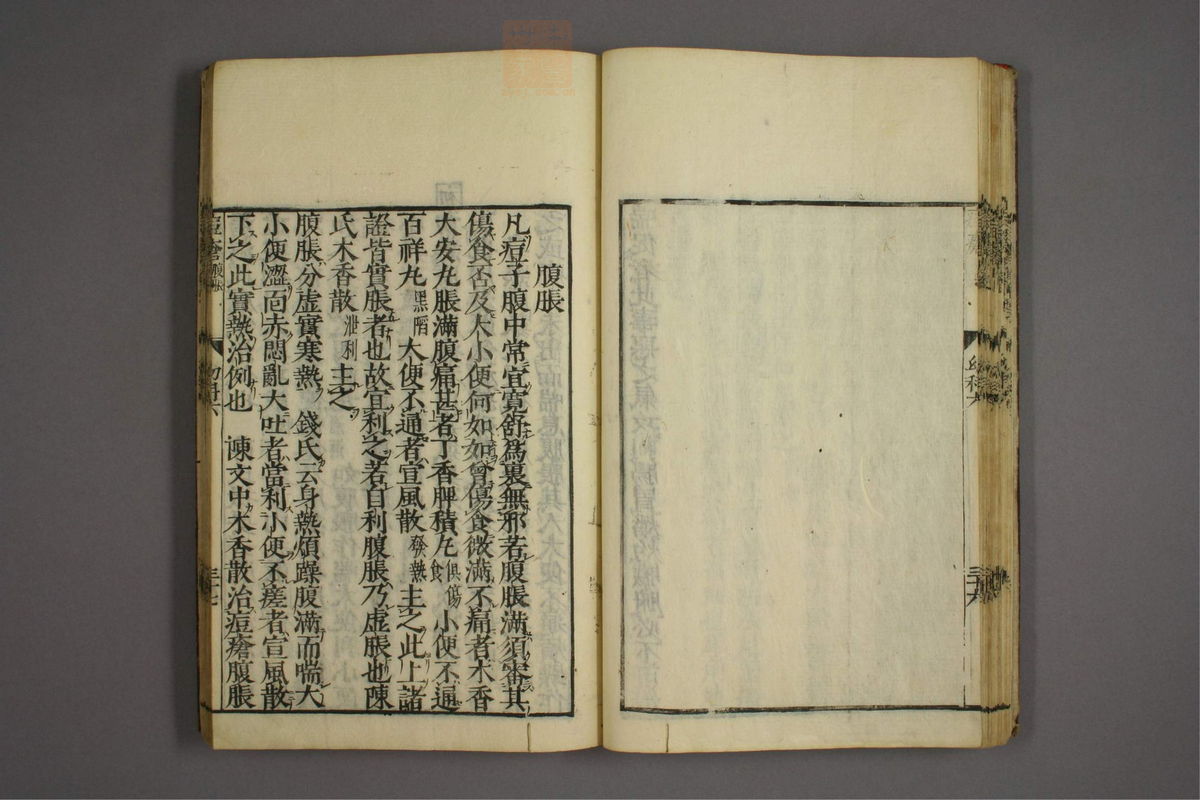 幼科六
三十六
腹脹
凡痘子腹中常宜寬舒爲裏無邪若腹脹滿須審其
傷食否及大小便何如如曾傷食微滿不痛者木香
大安丸脹滿腹痛甚者丁香脾積丸俱傷食小便不通
百祥丸黑陷大便不通者宣風散發熱主之此上諸
證皆實脹者也故宜利之若自利腹脹乃虛脹也陳
氏木香散泄利主之
腹脹分虛實寒熱 錢氏云身熱煩躁腹滿而喘大
小便澀面赤悶亂大吐者當利小便不瘥者宣風散
下之此實熱治例也 陳文中木香散治痘瘡腹脹
痘瘡腹脹
三十七